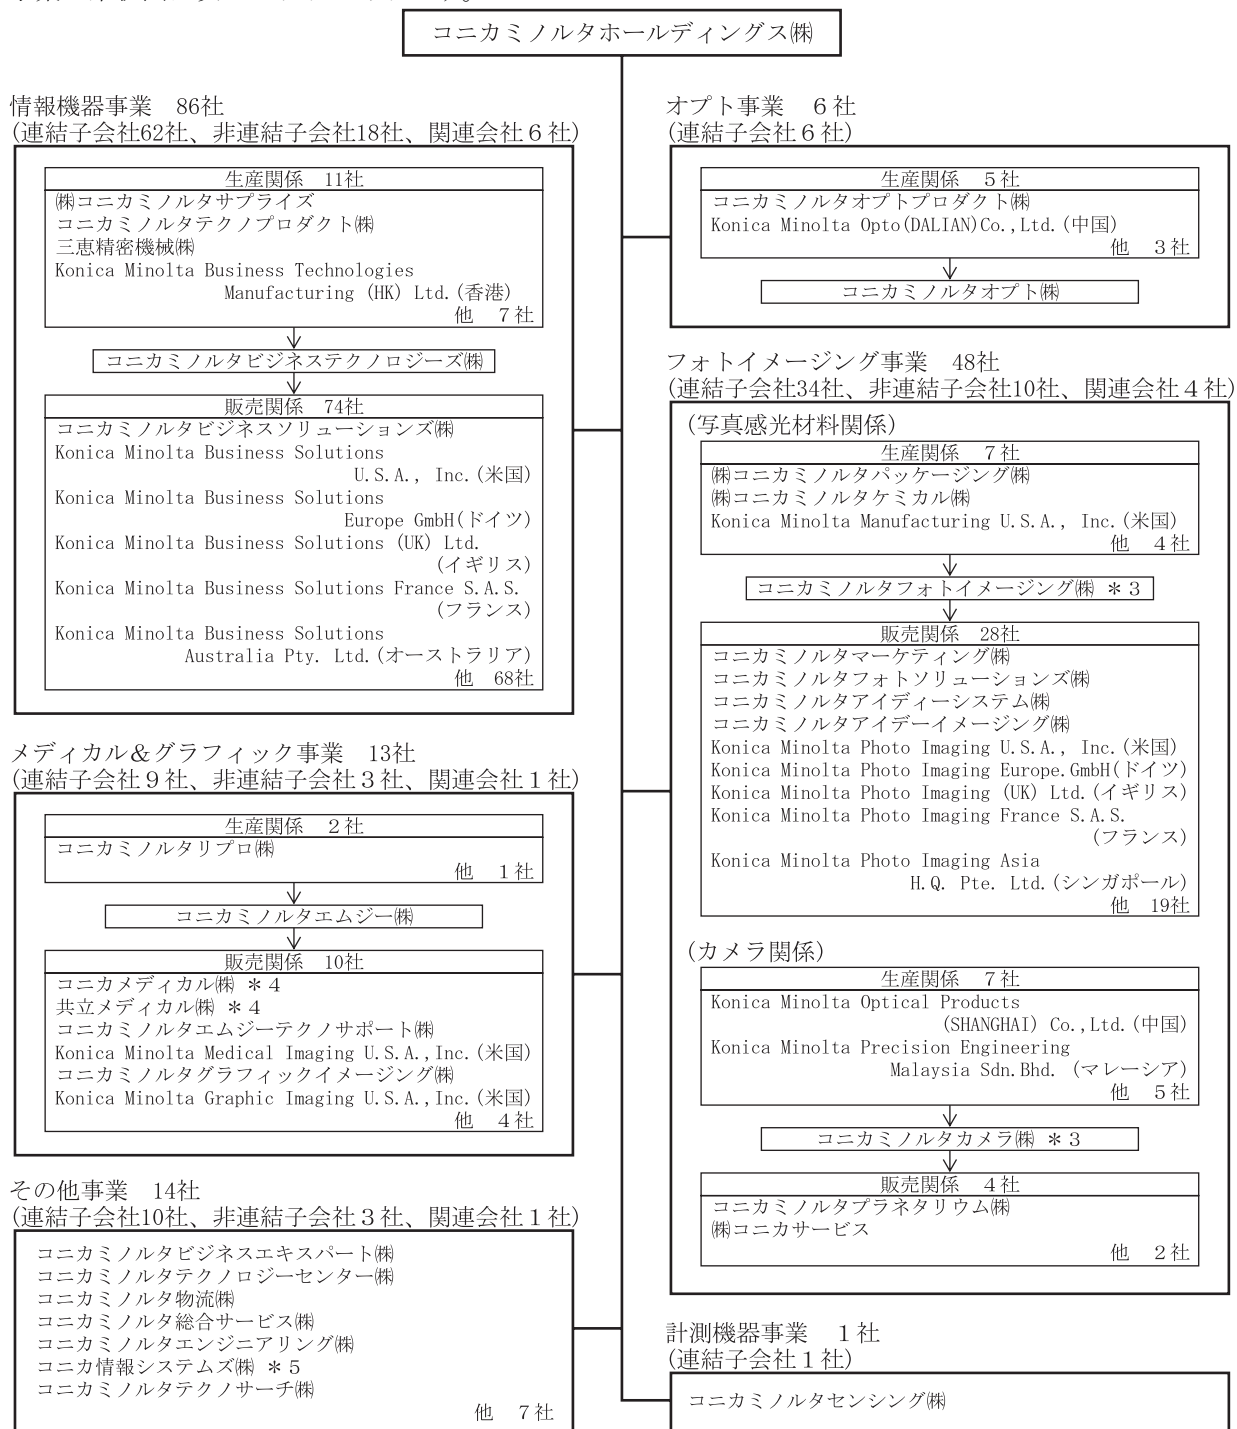 コニカミノルタホールディングス㈱
情報機器事業　86社
(連結子会社62社、非連結子会社18社、関連会社６社)
生産関係　11社
㈱コニカミノルタサプライズ
コニカミノルタテクノプロダクト㈱
三恵精密機械㈱
Konica Minolta Business Technologies
Manufacturing (HK) Ltd.(香港)
他　７社
コニカミノルタビジネステクノロジーズ㈱
販売関係　74社
コニカミノルタビジネスソリューションズ㈱
Konica Minolta Business Solutions
U.S.A., Inc.(米国)
Konica Minolta Business Solutions
Europe GmbH(ドイツ)
Konica Minolta Business Solutions (UK) Ltd.
(イギリス)
Konica Minolta Business Solutions France S.A.S.
(フランス)
Konica Minolta Business Solutions
Australia Pty. Ltd.(オーストラリア)
他　68社
メディカル＆グラフィック事業　13社
(連結子会社９社、非連結子会社３社、関連会社１社)
生産関係　２社
コニカミノルタリプロ㈱
他　１社
コニカミノルタエムジー㈱
販売関係　10社
コニカメディカル㈱ ＊４
共立メディカル㈱ ＊４
コニカミノルタエムジーテクノサポート㈱
Konica Minolta Medical Imaging U.S.A.,Inc.(米国)
コニカミノルタグラフィックイメージング㈱
Konica Minolta Graphic Imaging U.S.A.,Inc.(米国)
他　４社
その他事業　14社
(連結子会社10社、非連結子会社３社、関連会社１社)
コニカミノルタビジネスエキスパート㈱
コニカミノルタテクノロジーセンター㈱
コニカミノルタ物流㈱
コニカミノルタ総合サービス㈱
コニカミノルタエンジニアリング㈱
コニカ情報システムズ㈱ ＊５
コニカミノルタテクノサーチ㈱
他　７社
オプト事業　６社
(連結子会社６社)
生産関係　５社
コニカミノルタオプトプロダクト㈱
Konica Minolta Opto(DALIAN)Co.,Ltd.(中国)
他　３社
コニカミノルタオプト㈱
フォトイメージング事業　48社
(連結子会社34社、非連結子会社10社、関連会社４社)
(写真感光材料関係)
生産関係　７社
㈱コニカミノルタパッケージング㈱
㈱コニカミノルタケミカル㈱
Konica Minolta Manufacturing U.S.A., Inc.(米国)
他　４社
コニカミノルタフォトイメージング㈱ ＊３
販売関係　28社
コニカミノルタマーケティング㈱
コニカミノルタフォトソリューションズ㈱
コニカミノルタアイディーシステム㈱
コニカミノルタアイデーイメージング㈱
Konica Minolta Photo Imaging U.S.A., Inc.(米国)
Konica Minolta Photo Imaging Europe.GmbH(ドイツ)
Konica Minolta Photo Imaging (UK) Ltd.(イギリス)
Konica Minolta Photo Imaging France S.A.S.
(フランス)
Konica Minolta Photo Imaging Asia
H.Q. Pte. Ltd.(シンガポール)
他　19社
(カメラ関係)
生産関係　７社
Konica Minolta Optical Products
(SHANGHAI) Co.,Ltd.(中国)
Konica Minolta Precision Engineering
Malaysia Sdn.Bhd. (マレーシア)
他　５社
コニカミノルタカメラ㈱ ＊３
販売関係　４社
コニカミノルタプラネタリウム㈱
㈱コニカサービス
他　２社
計測機器事業　１社
(連結子会社１社)
コニカミノルタセンシング㈱